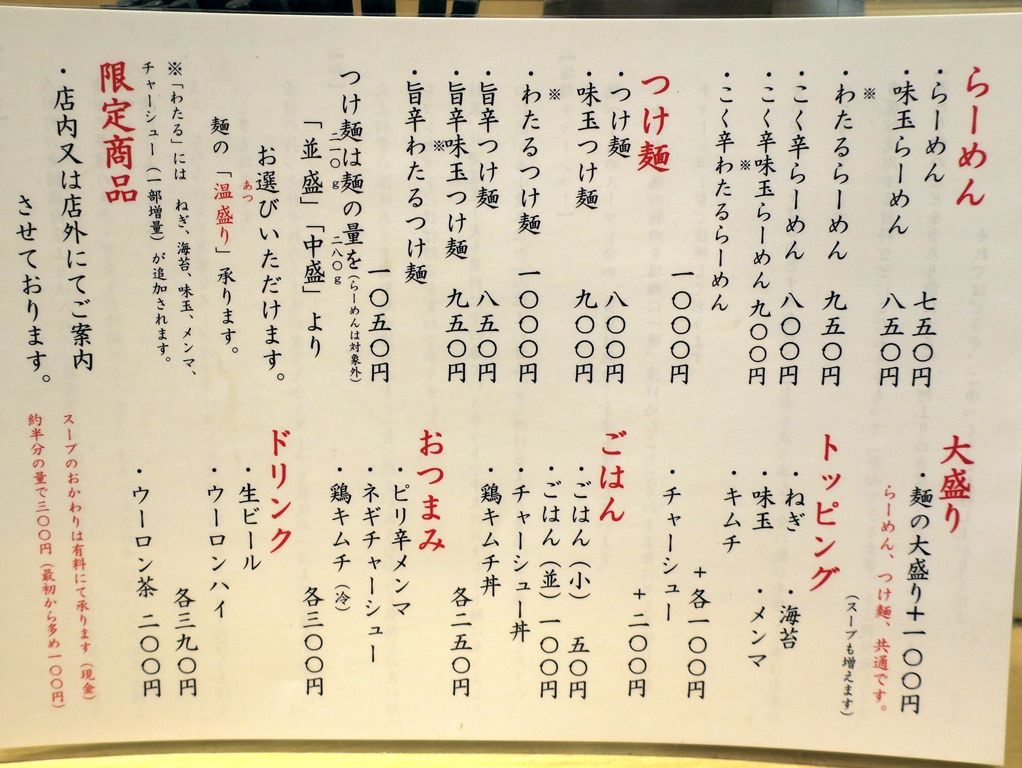 らーめん
・らーめん 七五〇円
・味玉らーめん 八五〇円
※
・わたるらーめん 九五〇円
・こく辛らーめん 八〇〇円
・こく辛味玉らーめん 九〇〇円
※
・こく辛わたるらーめん
一〇〇〇円
つけ麺
・つけ麺 八〇〇円
・味玉つけ麺 九〇〇円
※
・わたるつけ麺 一〇〇〇円
・旨辛つけ麺 八五〇円
・旨辛味玉つけ麺 九五〇円
※
・旨辛わたるつけ麺
一〇五〇円
つけ麺は麺の量を(らーめんは対象外)
二一〇g 二八〇g
「並盛」「中盛」より
お選びいただけます。
あつ
麺の「温盛り」承ります。
※「わたる」には ねぎ、海苔、味玉、メンマ、
チャーシュー(一部増量)が追加されます。
限定商品
・店内又は店外にてご案内
させております。
大盛り
・麺の大盛り+一〇〇円
らーめん、つけ麺、共通です。
(スープも増えます)
トッピング
・ねぎ ・海苔
・味玉 ・メンマ
・キムチ
+各一〇〇円
・チャーシュー
+二〇〇円
ごはん
・ごはん(小) 五〇円
・ごはん(並)一〇〇円
・チャーシュー丼
・鶏キムチ丼
各二五〇円
おつまみ
・ピリ辛メンマ
・ネギチャーシュー
・鶏キムチ(冷)
各三〇〇円
ドリンク
・生ビール
・ウーロンハイ
各三九〇円
・ウーロン茶 二〇〇円
スープのおかわりは有料にて承ります(現金)
約半分の量で三〇〇円(最初から多め一〇〇円)